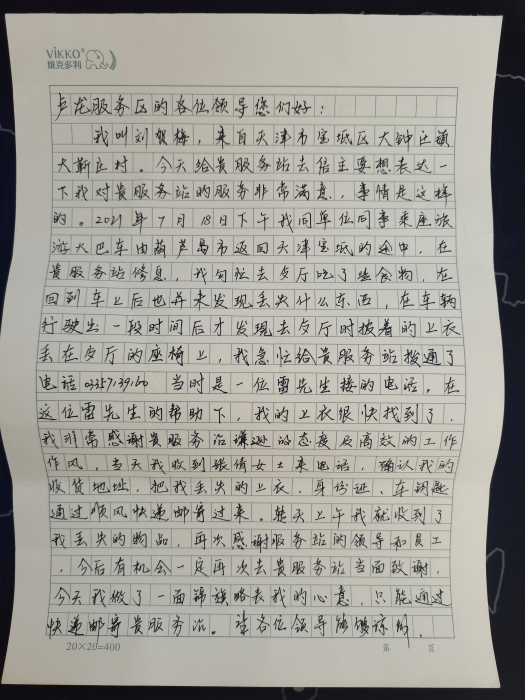 ViKKO
维克多利
卢龙服务区的各位领导您们好:
我叫刘贺梅,来自天津市宝坻区大钟庄镇
大靳庄村。今天给贵服务站去信主要想表达一
下我对贵服务站的服务非常满意,事情是这样
的。2021年7月18日下午我同单位同事乘座旅
游大巴车由葫芦岛市返回天津宝坻的途中,在
贵服务站修息,我匆忙去夕厅吃了些食物,在
回到车上后也并未发现丢失什么东西,在车辆
行驶出一段时间后才发现去夕厅时披着的上衣
丢在夕厅的座椅上,我急忙给贵服务站拨通了
电话 当时是一位雷先生接的电话,在
这位雷先生的帮助下,我的上衣很快找到了.
我非常感谢贵服务治谦逊的态度及高效的工作
作风,当天我收到张倩女士来电话,确认我的
收货地址,把我丢失的上衣、身份证、车钥匙
通过顺风快递邮寄过来.转天上午我就收到了
我丢失的物品,再次感谢服务站的领导和员工
,今后有机会一定再次去贵服务站当面致谢,
今天我做了一面锦旗略表我的心意,只能通过
快递邮寄贵服务治。望各位领导能够谅解.
20×20=400
第 页